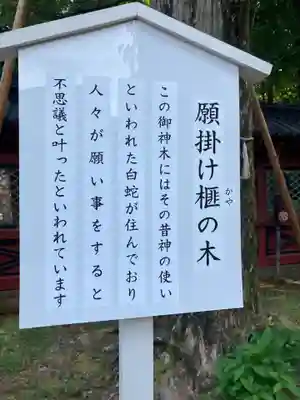 願掛け榧の木
かや
この御神木にはその昔神の使い
といわれた白蛇が住んでおり
人々が願い事をすると
不思議と叶ったといわれています